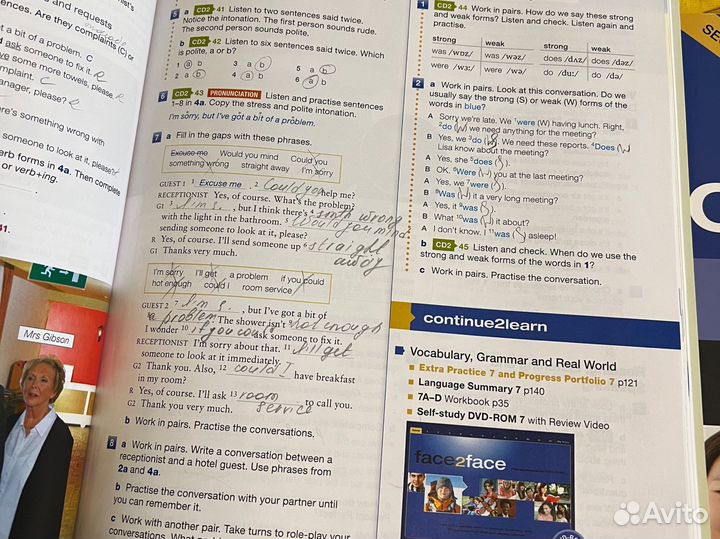 and requests
sences. Are they complaints (C) or
t a bit of a problem. C
d ask someone to fix it. R
ve some more towels, please. R
mplaint. C
anager, please? R
ere's something wrong with
t someone to look at it, please?
erb forms in 4a. Then complete
or verb+ing.
Mrs Gibson
5 a CD2 41 Listen to two sentences said twice.
Notice the intonation. The first person sounds rude.
The second person sounds polite.
b CD2 42 Listen to six sentences said twice. Which
is polite, a or b?
1 a b 3 a b 5 a b
2 a b 4 a b 6 a b
6 CD2 43 PRONUNCIATION Listen and practise sentences
1–8 in 4a. Copy the stress and polite intonation.
I'm sorry, but I've got a bit of a problem.
7 a Fill in the gaps with these phrases.
Excuse me Would you mind Could you
something wrong straight away I'm sorry
GUEST 1 1 Excuse me. 2 Could you help me?
RECEPTIONIST Yes, of course. What's the problem?
G1 3 I'm s., but I think there's 4 smth wrong
with the light in the bathroom. 5 Would you mind
sending someone to look at it, please?
R Yes, of course. I'll send someone up 6 straight
away
G1 Thanks very much.
I'm sorry I'll get a problem if you could
hot enough could I room service
GUEST 2 7 I'm s., but I've got a bit of
8 a problem. The shower isn't 9 hot enough
I wonder 10 if you cou. ask someone to fix it.
RECEPTIONIST I'm sorry about that. 11 I'll get
someone to look at it immediately.
G2 Thank you. Also, 12 could I have breakfast
in my room?
R Yes, of course. I'll ask 13 room to call you.
service
G2 Thank you very much.
b Work in pairs. Practise the conversations.
8 a Work in pairs. Write a conversation between a
receptionist and a hotel guest. Use phrases from
2a and 4a.
b Practise the conversation with your partner until
you can remember it.
c Work with another pair. Take turns to role-play your
1 CD2 44 Work in pairs. How do we say these strong
and weak forms? Listen and check. Listen again and
practise.
strong weak strong weak
was /wɒz/ was /wəz/ does /dʌz/ does /dəz/
were /wɜː/ were /wə/ do /duː/ do /də/
2 a Work in pairs. Look at this conversation. Do we
usually say the strong (S) or weak (W) forms of the
words in blue?
A Sorry we're late. We 1were (W) having lunch. Right,
2do (W) we need anything for the meeting?
B Yes, we 3do (S). We need these reports. 4Does (W)
Lisa know about the meeting?
A Yes, she 5does (S).
B OK. 6Were (W) you at the last meeting?
A Yes, we 7were (S).
B 8Was (W) it a very long meeting?
A Yes, it 9was (S).
B What 10was (W) it about?
A I don't know. I 11was (W) asleep!
b CD2 45 Listen and check. When do we use the
strong and weak forms of the words in 1?
c Work in pairs. Practise the conversation.
continue2learn
Vocabulary, Grammar and Real World
Extra Practice 7 and Progress Portfolio 7 p121
Language Summary 7 p140
7A–D Workbook p35
Self-study DVD-ROM 7 with Review Video
face2face
Avito